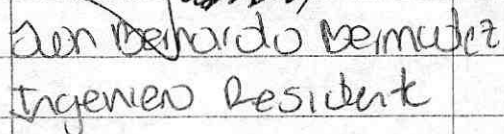 Jean Bernardo Bermudez
Ingeniero Resident